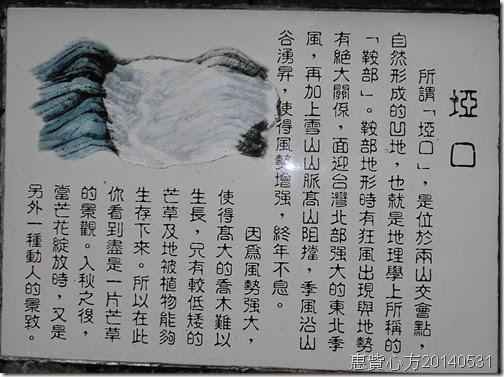 埡口
所謂「埡口」,是位於兩山交會點,
自然形成的凹地,也就是地理學上所稱的
「鞍部」。鞍部地形時有狂風出現與地勢
有絕大關係,面迎台灣北部強大的東北季
風,再加上雪山山脈高山阻擋,季風沿山
谷湧昇,使得風勢增強,終年不息。
因為風勢強大,
使得高大的喬木難以
生長,只有較低矮的
芒草及地被植物能夠
生存下來。所以在此
你看到盡是一片芒草
的景觀。入秋之後,
當芒花綻放時,又是
另外一種動人的景致。
惠質心方20140531